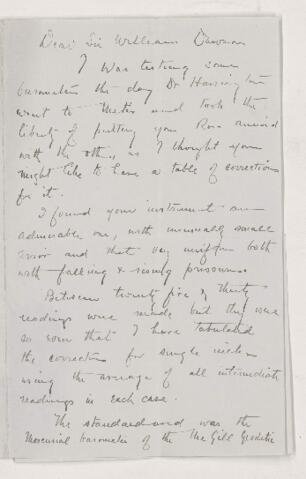 Dear Sir William Dawson
I was testing some
barometers the day Dr Harrington
went to Metis and took the
liberty of putting your Ross aneroid
with the others, as I thought you
might like to have a table of corrections
for it.
I found your instrument an
admirable one, with unusually small
error and that very uniform both
with falling & rising pressures.
Between twenty five & thirty
readings were made but they were
so even that I have tabulated
the correction for single inches
using the average of all intermediate
readings in each case.
The standard used was the
Mercurial barometer of the Mc Gill Geodetic